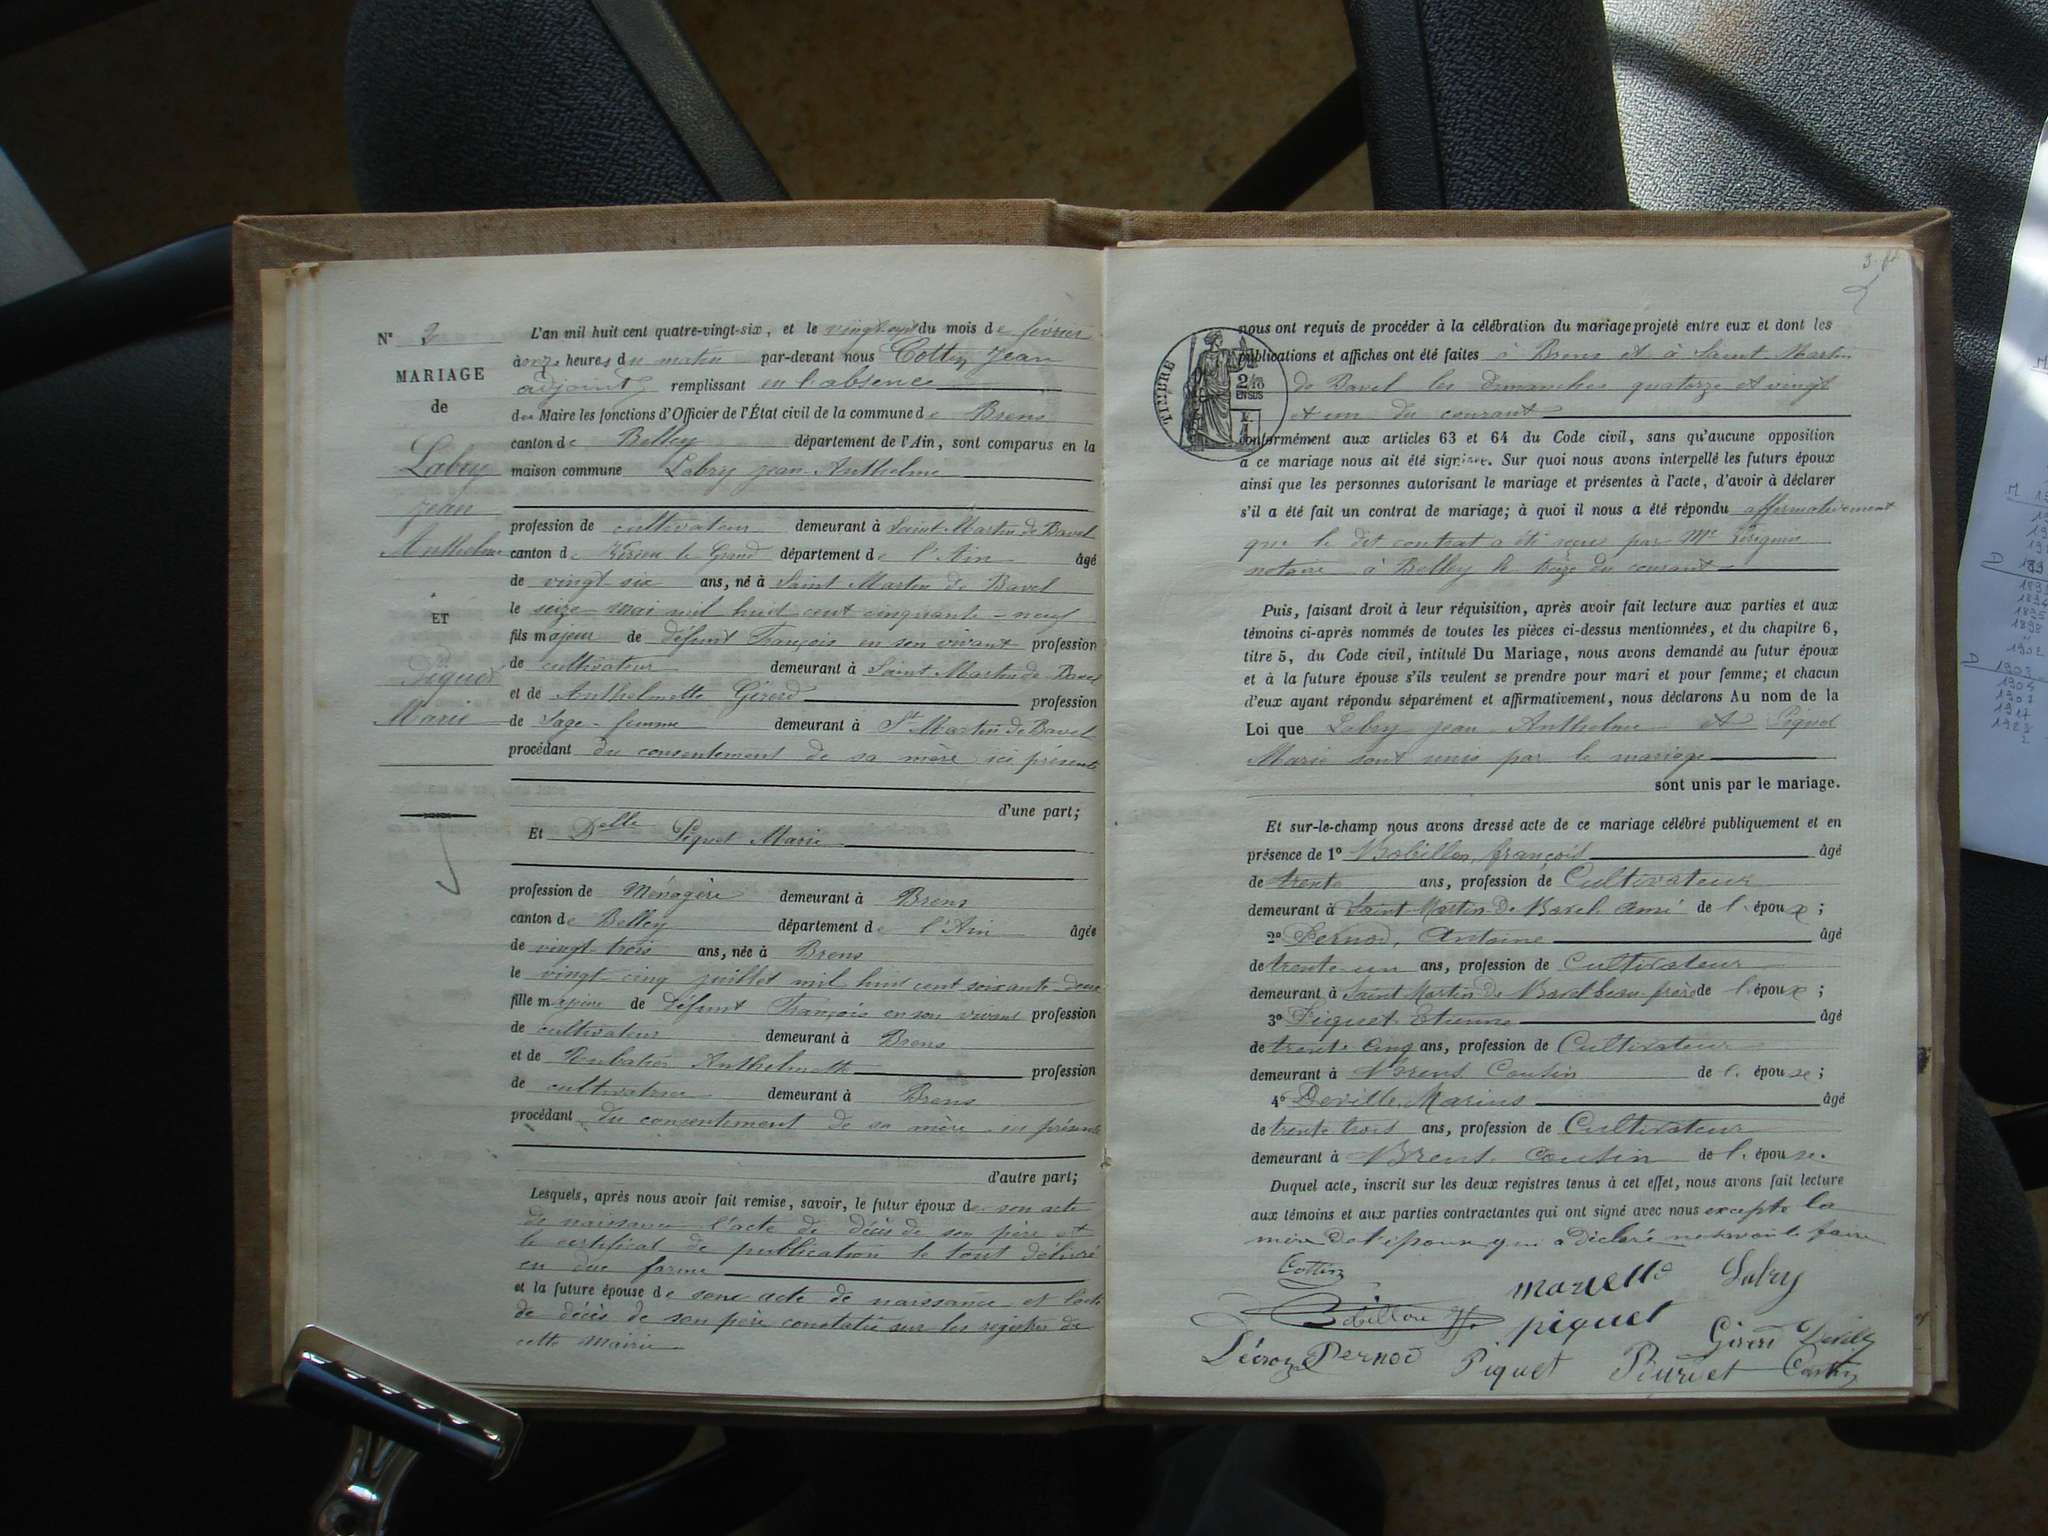 N° 2
MARIAGE
de
Labry
Jean
Anthelme
ET
Piquet
Marie
L'an mil huit cent quatre-vingt-six, et le du mois de février
à onze heures du matin par-devant nous Cottin Jean
adjoint remplissant en l'absence
du Maire les fonctions d'Officier de l'État civil de la commune de Brens
canton de Belley département de l'Ain, sont comparus en la
maison commune Labry Jean Anthelme
profession de cultivateur demeurant à Saint Martin de Bavel
canton de Virieu le Grand département de l'Ain âgé
de vingt six ans, né à Saint Martin de Bavel
le seize mai mil huit cent cinquante-neuf
fils majeur de défunt François en son vivant profession
de cultivateur demeurant à Saint Martin de Bavel
et de Anthelmette Girerd profession
de Sage-femme demeurant à St Martin de Bavel
procédant du consentement de sa mère ici présente
d'une part;
Et Delle Piquet Marie
profession de Ménagère demeurant à Brens
canton de Belley département de l'Ain âgée
de vingt trois ans, née à Brens
le vingt cinq juillet mil huit cent soixante-deux
fille majeure de défunt François en son vivant profession
de cultivateur demeurant à Brens
et de Anthelmette profession
de cultivatrice demeurant à Brens
procédant du consentement de sa mère ici présente
d'autre part;
Lesquels, après nous avoir fait remise, savoir, le futur époux de son acte
de naissance l'acte de décès de son père et
le certificat de publication le tout délivré
en due forme
et la future épouse de son acte de naissance et l'acte
de décès de son père constatés sur les registres de
cette Mairie
TIMBRE
nous ont requis de procéder à la célébration du mariage projeté entre eux et dont les
publications et affiches ont été faites à Brens et à Saint Martin
de Bavel les dimanches quatorze et vingt
et un du courant
conformément aux articles 63 et 64 du Code civil, sans qu'aucune opposition
à ce mariage nous ait été signifiée. Sur quoi nous avons interpellé les futurs époux
ainsi que les personnes autorisant le mariage et présentes à l'acte, d'avoir à déclarer
s'il a été fait un contrat de mariage; à quoi il nous a été répondu affirmativement
que le dit contrat a été reçu par Me
notaire à Belley le treize du courant
Puis, faisant droit à leur réquisition, après avoir fait lecture aux parties et aux
témoins ci-après nommés de toutes les pièces ci-dessus mentionnées, et du chapitre 6,
titre 5, du Code civil, intitulé Du Mariage, nous avons demandé au futur époux
et à la future épouse s'ils veulent se prendre pour mari et pour femme; et chacun
d'eux ayant répondu séparément et affirmativement, nous déclarons Au nom de la
Loi que Labry Jean Anthelme et Piquet
Marie sont unis par le mariage
sont unis par le mariage.
Et sur-le-champ nous avons dressé acte de ce mariage célébré publiquement et en
présence de 1° Robillon, françois âgé
de trente ans, profession de Cultivateur
demeurant à Saint Martin de Bavel ami de l'époux;
2° Pernod, Antoine âgé
de trente un ans, profession de Cultivateur
demeurant à Saint Martin de Bavel beau frère de l'époux;
3° Piquet Etienne âgé
de trente cinq ans, profession de Cultivateur
demeurant à Brens Cousin de l'épouse;
4° Deville Marius âgé
de trente trois ans, profession de Cultivateur
demeurant à Brens. Cousin de l'épouse.
Duquel acte, inscrit sur les deux registres tenus à cet effet, nous avons fait lecture
aux témoins et aux parties contractantes qui ont signé avec nous excepté la
mère de l'épouse qui a déclaré ne savoir le faire
Cottin
Mariette Labry
Robillon
piquet
Girerd Deville
Pernod Piquet